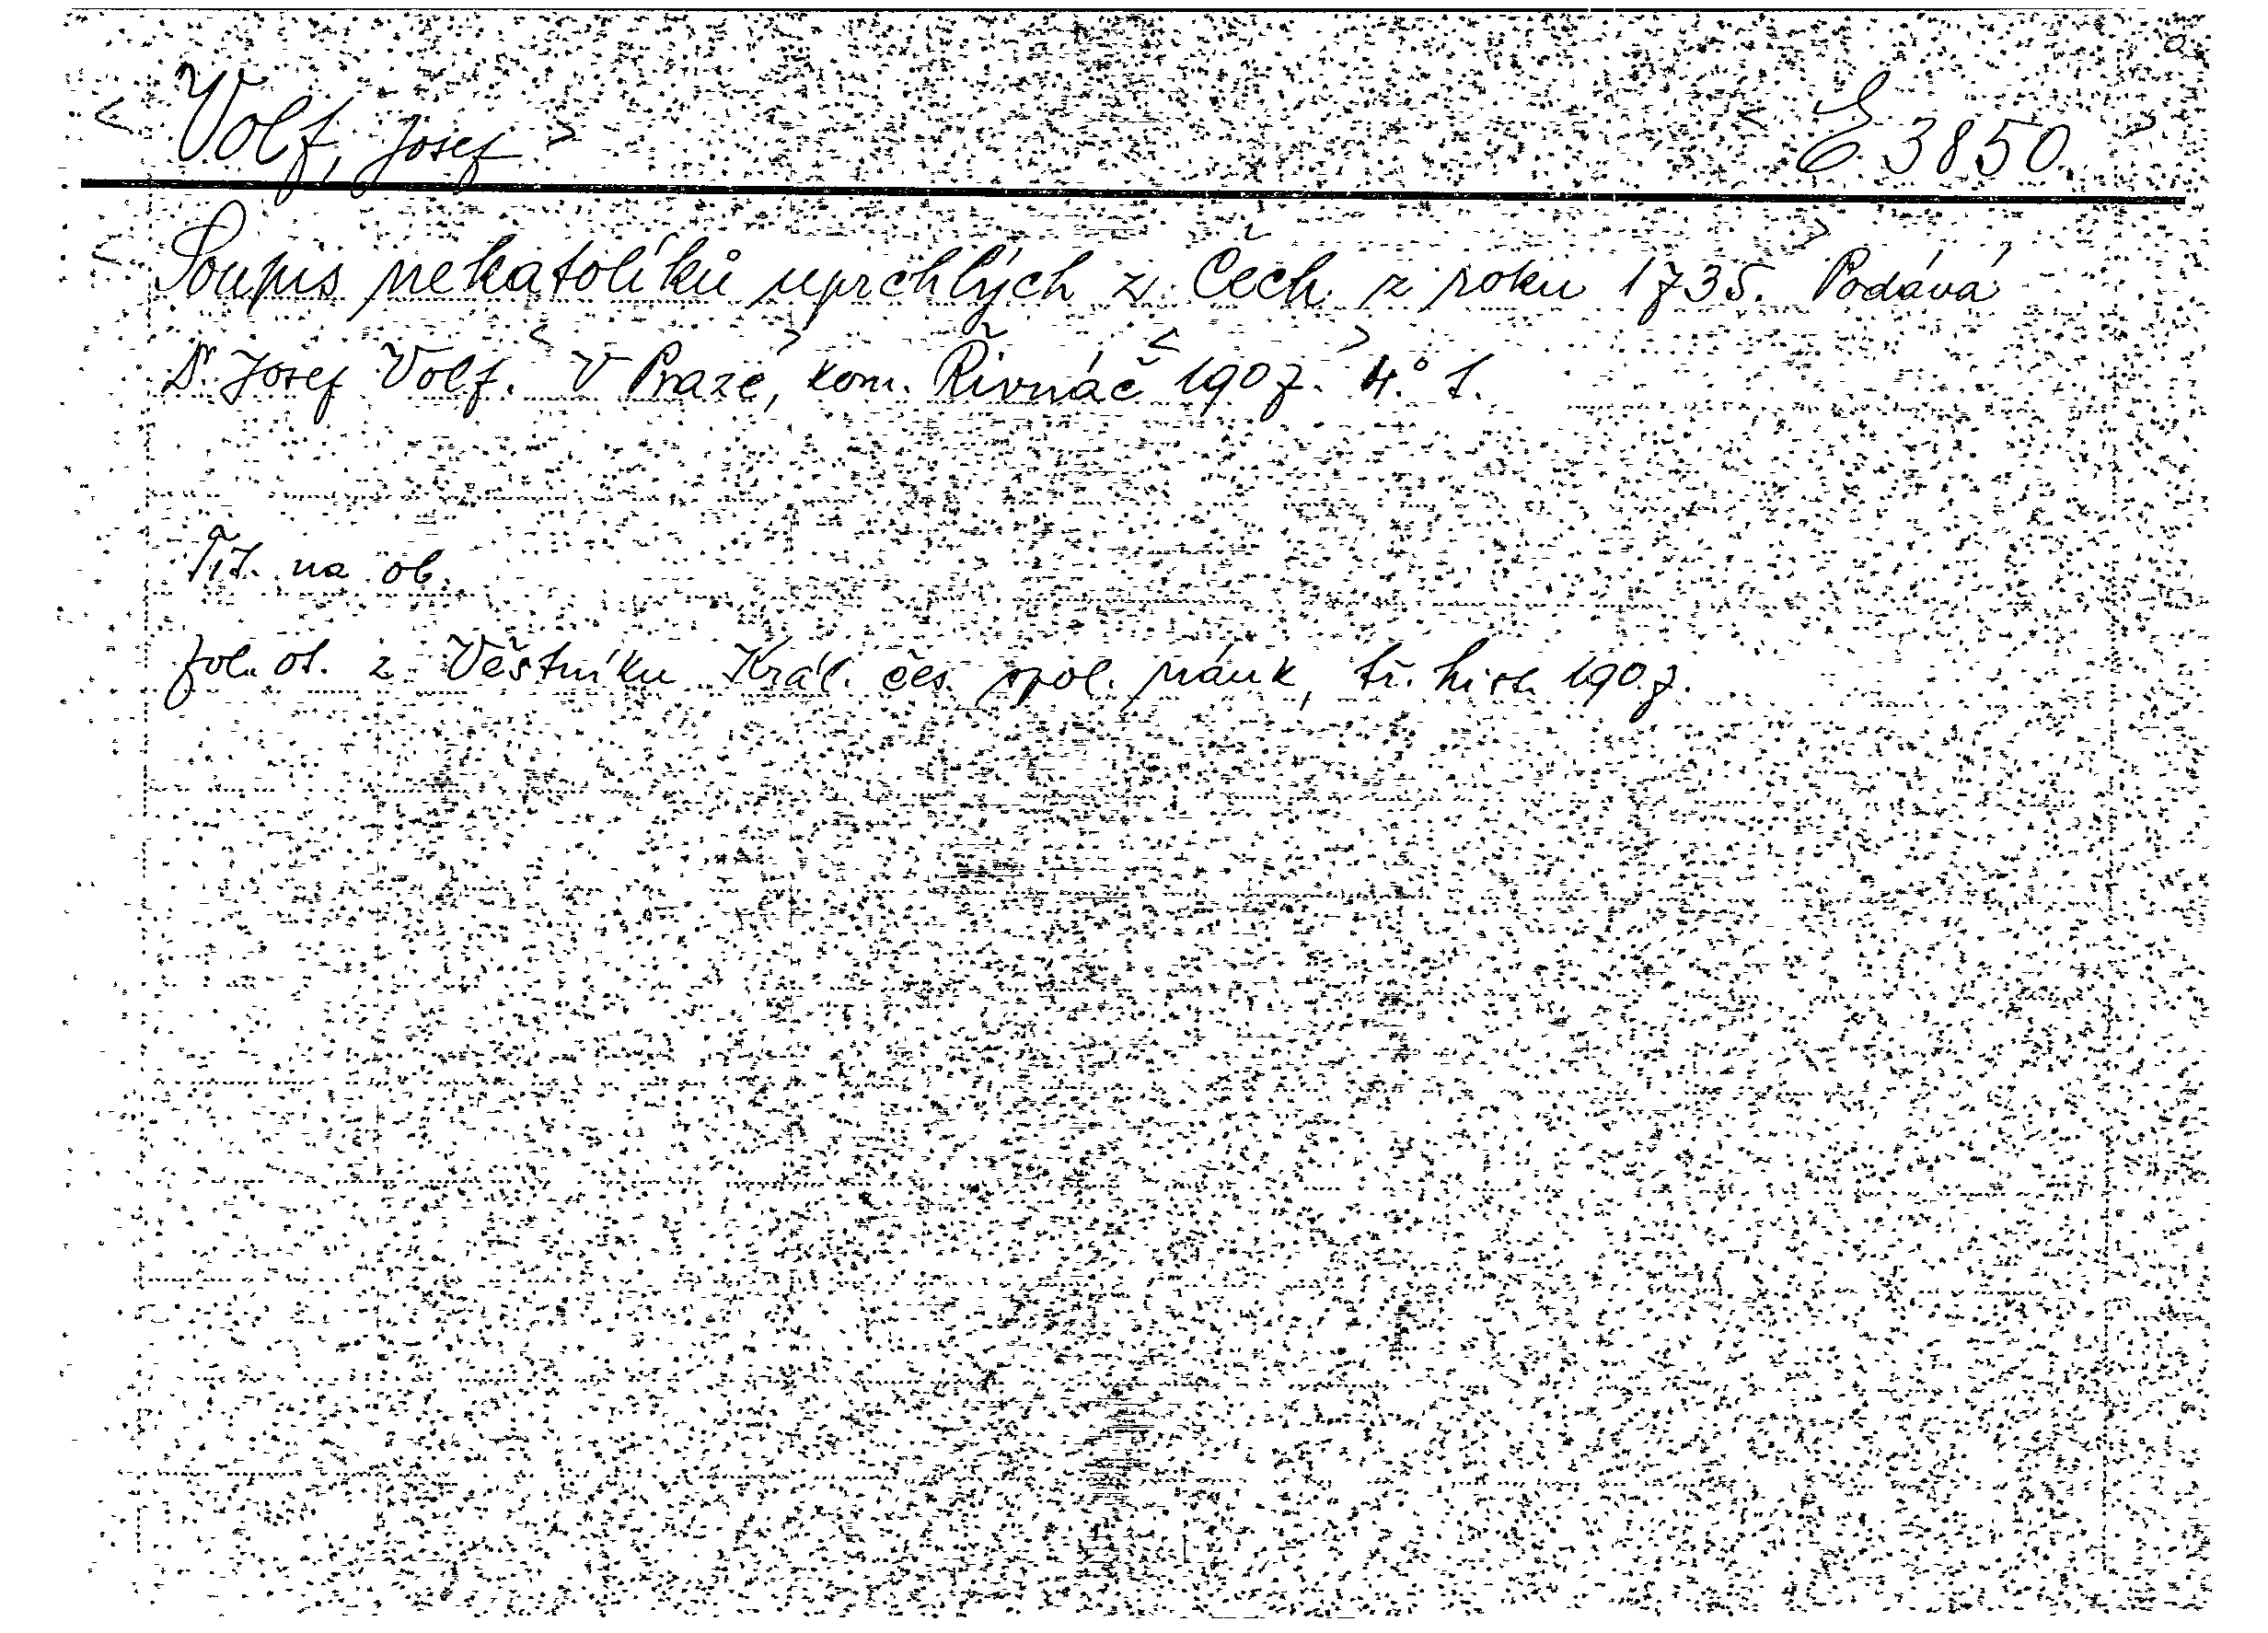 < Volf, Josef > < E 3850. >
< Soupis nekatolíků uprchlých z Čech z roku 1735. > Podává
Dr. Josef Volf. < V Praze, > kom. Řivnáč < 1907. > 4.° 1.
Tit. na ob.
ot. z Věstníku Král. čes. spol. náuk, tř. hist. 1907.